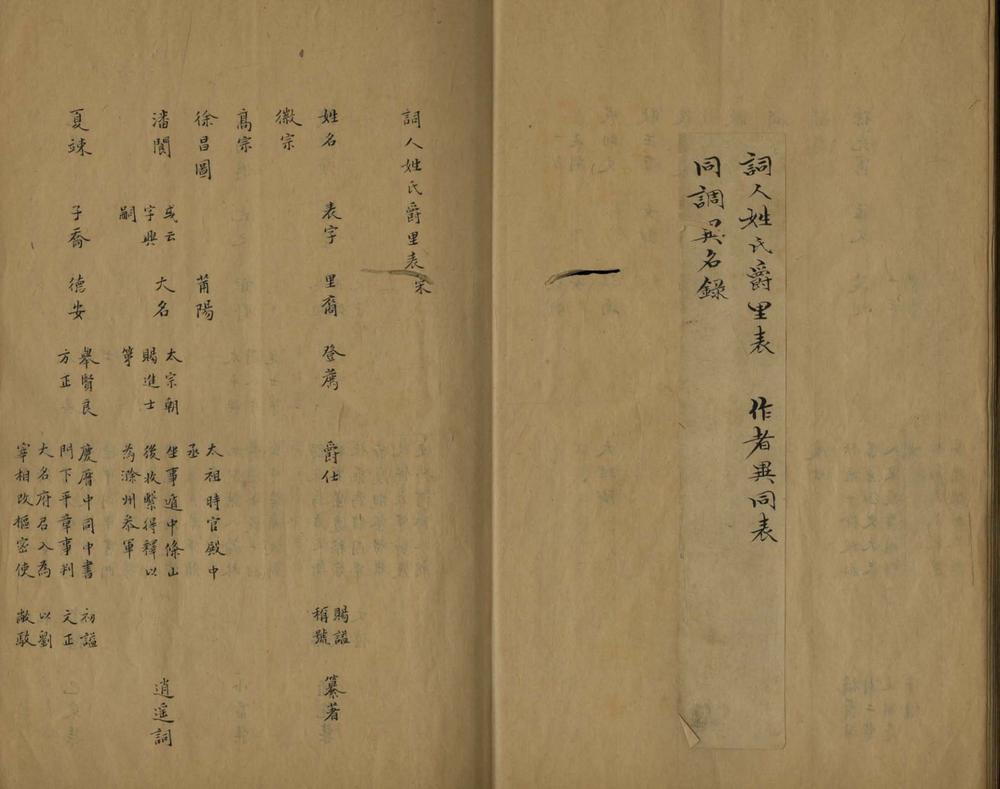 詞人姓氏爵里表 作者異同表
同調異名錄
詞人姓氏爵里表宋
姓名 表字 里裔 登薦 爵仕 賜諡稱號 纂著
徽宗
高宗
徐昌圖 莆陽 太祖時官殿中丞
潘閬 或云字興嗣 大名 太宗朝賜進士第 坐事遁中條山後收繫得釋以為滁州參軍 逍遥詞
夏竦 子喬 德安 舉賢良方正 慶曆中同中書門下平章事判大名府召入為宰相改樞密使 初諡文正以劉敞駁